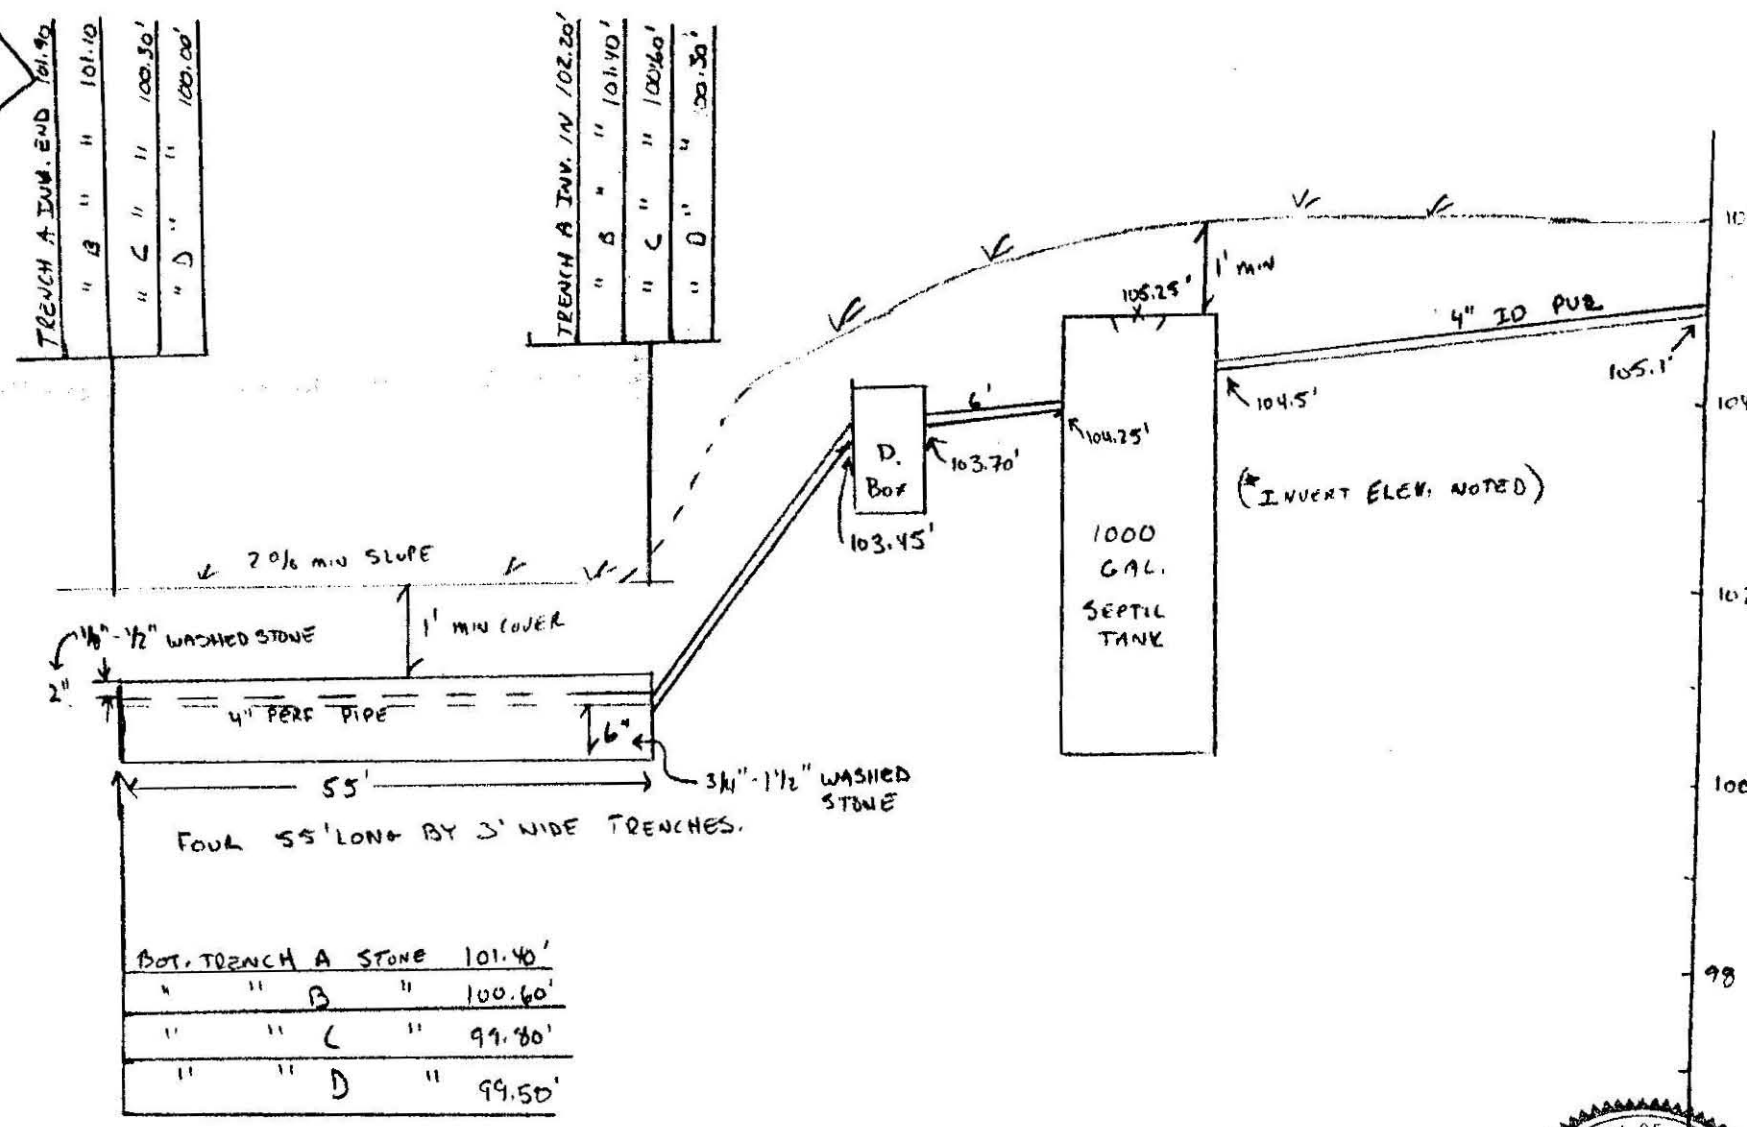 TRENCH A INV. END 101.90
" B " " 101.10
" C " " 100.30'
" D " " 100.00'
TRENCH A INV. IN 102.20'
" B " " 101.40'
" C " " 100.60'
" D " " 100.30'
1' MIN
105.25'
4" ID PVC
105.1'
104.5'
6'
104.25'
103.70'
D.
BOX
103.45'
(*INVERT ELEV. NOTED)
1000
GAL.
SEPTIC
TANK
2% MIN SLOPE
1' MIN COVER
1/8"-1/2" WASHED STONE
2"
4" PERF PIPE
6"
55'
3/4"-1 1/2" WASHED
STONE
FOUR 55' LONG BY 3' WIDE TRENCHES.
BOT. TRENCH A STONE 101.40'
" " B " 100.60'
" " C " 99.80'
" " D " 99.50'
104
102
100
98